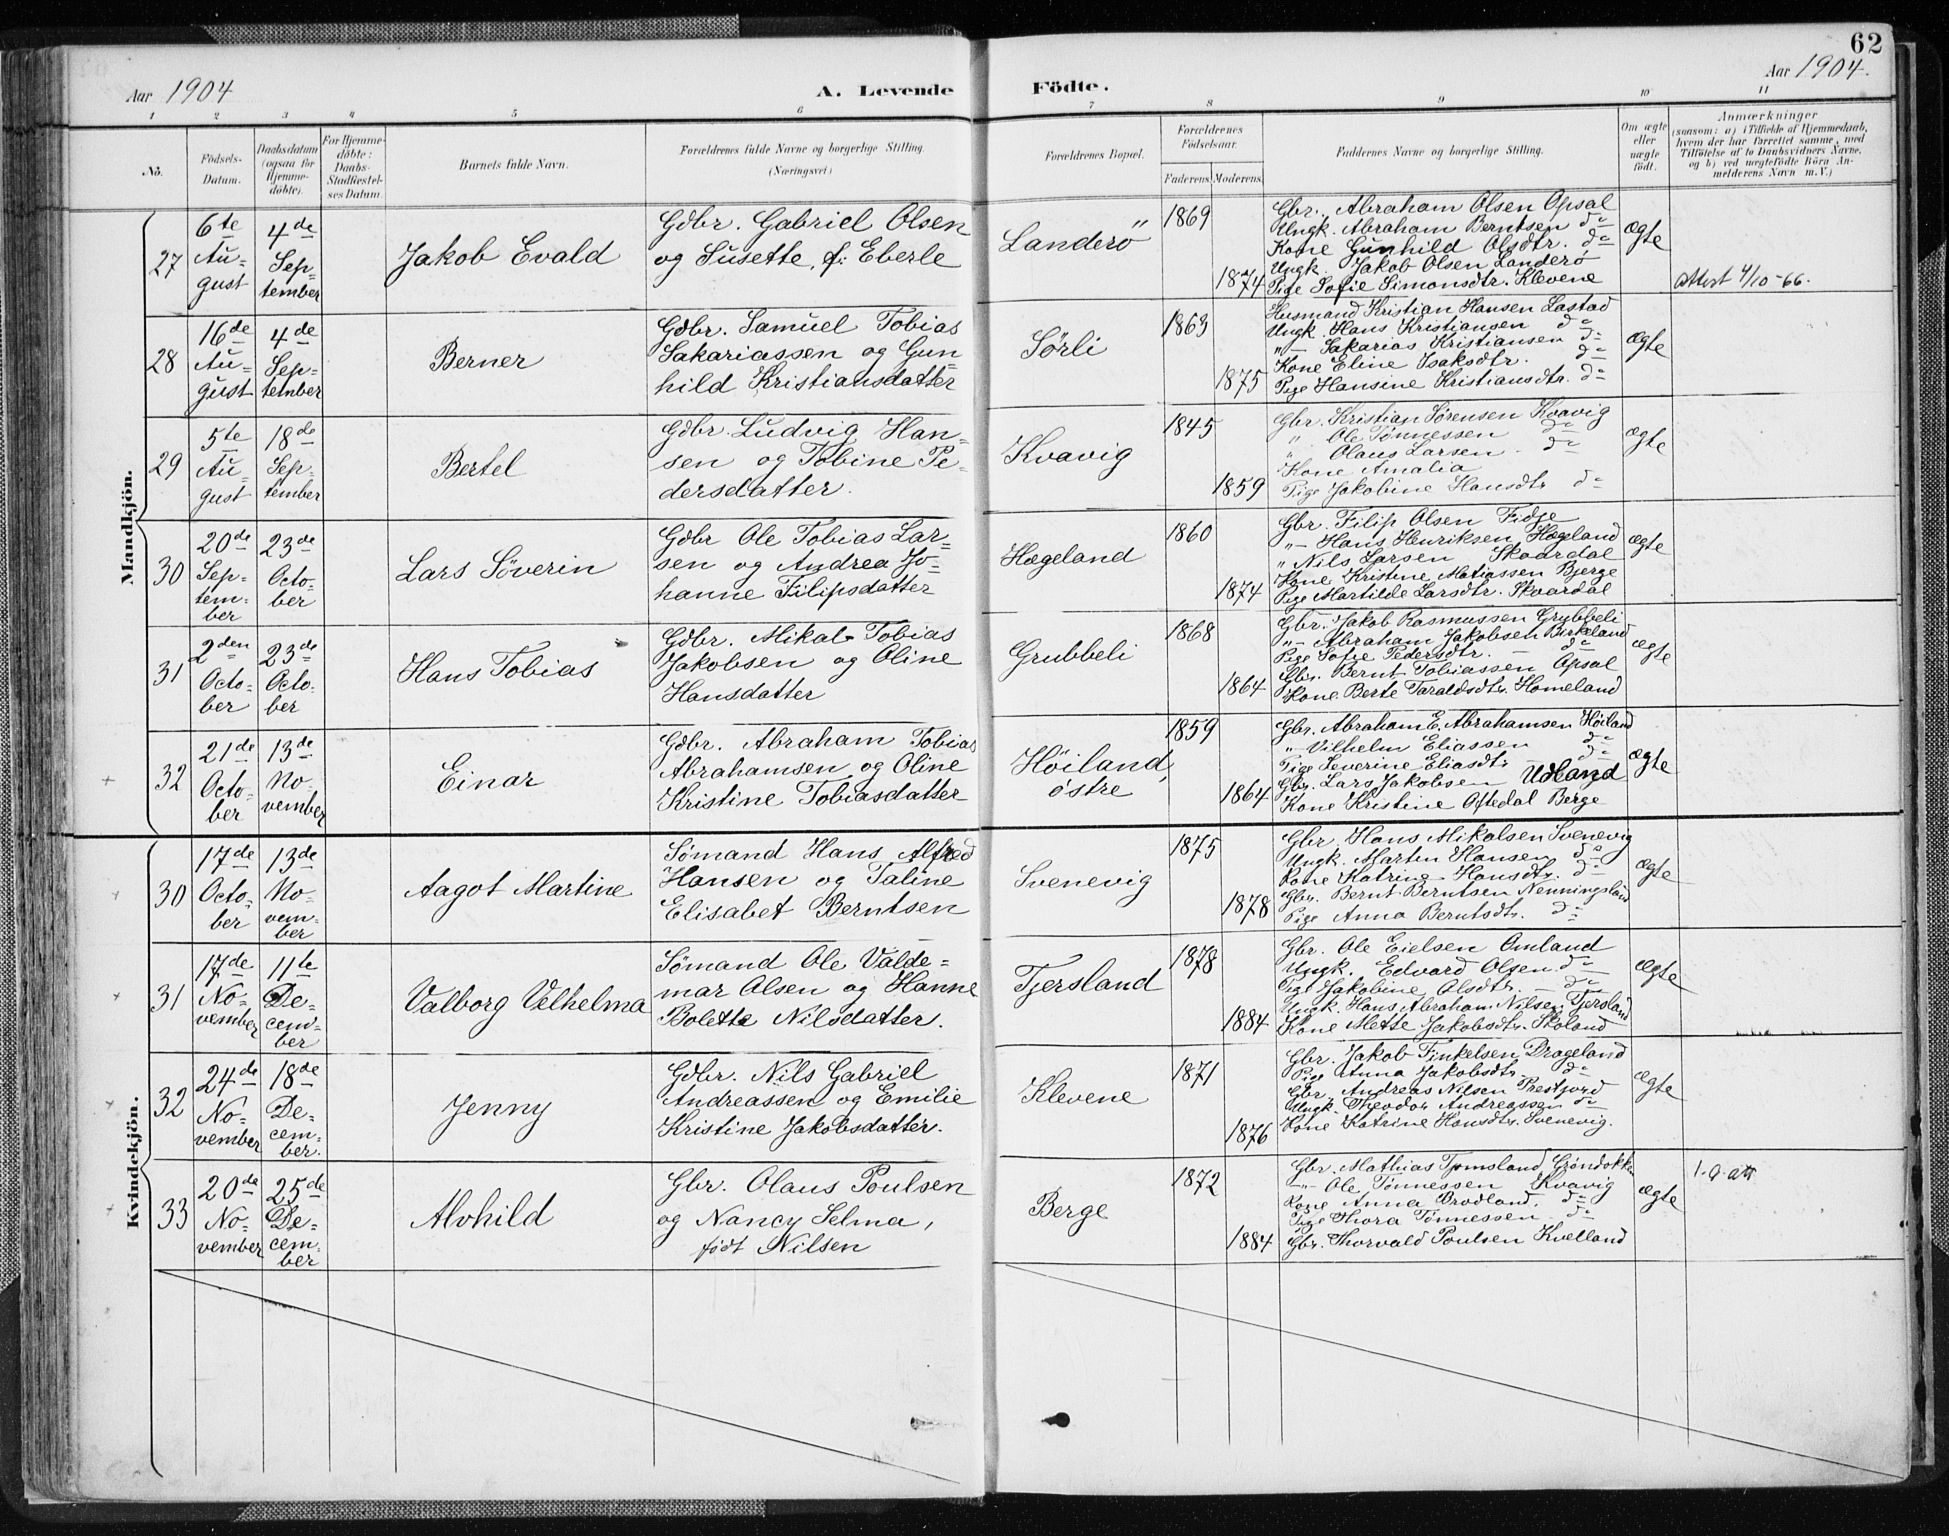 62
Aar 1904
A. Levende Födte.
Aar 1904.
1 2 3 4 5 6 7 8 9 10 11
No.
Födsels-
Datum.
Daabsdatum
(ogsaa for
Hjemme-
döbte).
For Hjemme-
döbte:
Daabs-
Stadfæstel-
ses Datum.
Barnets fulde Navn.
Forældrenes fulde Navne og borgerlige Stilling.
(Næringsvei)
Forældrenes Bopæl.
Forældrenes
Födselsaar.
Faderens. Moderens.
Faddernes Navne og borgerlige Stilling.
Om ægte
eller
uægte
födt.
Anmærkninger
(saasom: a) i Tilfælde af Hjemmedaab,
hvem der har forrettet samme, med
Tilföielse af to Daabsvidners Navne,
og b) ved uægtefödte Börn An-
melderens Navn m.V.)
Mandkjön.
27
6te
Au-
gust
4de
Sep-
tember
Jakob Evald
Gdbr. Gabriel Olsen
og Susette, f: Eberle
Landerö
1869
1874
Gbr. Abraham Olsen Opsal
Ungk. Abraham Berntsen do
Kone Gunhild Olsdtr. do
Ungk. Jakob Olsen Landerö
Pige Sofie Simonsdtr. Klevene
ægte
Attest 4/10-66.
28
16de
Au-
gust
4de
Sep-
tember
Berner
Gdbr. Samuel Tobias
Sakariassen og Gun-
hild Kristiansdatter
Sørli
1863
1875
Husmand Kristian Hansen Lastad
Ungk. Hans Kristiansen do
"- Sakarias Kristiansen do
Kone Eline Isaksdtr. do
Pige Hansine Kristiansdtr. do
ægte
29
5te
Au-
gust
18de
Sep-
tember
Bertel
Gdbr. Ludvig Han-
sen og Tobine Pe-
dersdatter.
Kvavig
1845
1859
Gbr. Kristian Sørensen Kvavig
" Ole Tønnessen do
" Olaus Larsen do
Kone Amalia
Pige Jakobine Hansdtr do
ægte
30
20de
Sep-
tem-
ber
23de
Octo-
ber
Lars Söverin
Gdbr Ole Tobias Lar-
sen og Andrea Jo-
hanne Filipsdatter
Hægeland
1860
1874
Gbr. Filip Olsen Fidje
"- Hans Henriksen Hægeland
" Nils Larsen Skaardal
Kone Kristine Matiassen Bjerge
Pige Martilde Larsdtr. Skaardal
ægte
31
2den
Octo-
ber
23de
Octo-
ber
Hans Tobias
Gdbr. Mikal Tobias
Jakobsen og Oline
Hansdatter
Grubbeli
1868
1864
Gbr. Jakob Rasmussen Grubbeli
"- Abraham Jakobsen Birkeland
Pige Sofie Pedersdtr. - do
Gbr. Bernt Tobiassen Opsal
Kone Berte Taraldsdtr. Homeland
ægte
32
21de
Octo-
ber
13de
No-
vember
Einar
Gdbr. Abraham Tobias
Abrahamsen og Oline
Kristine Tobiasdatter
Höiland,
östre
1859
1864
Gbr. Abraham E. Abrahamsen Höiland
"- Vilhelm Eliassen do
Pige Severine Eliasdtr do
Gbr. Lars Jakobsen Udland
Kone Kristine Oftedal Berge
ægte
Kvindekjön.
30
17de
Octo-
ber
13de
No-
vem-
ber
Aagot Martine
Sømand Hans Alfred
Hansen og Taline
Elisabet Berntsen
Svenevig
1875
1878
Gbr. Hans Mikalsen Svenevig
Ungk. Martin Hansen do
Kone Katrine Hansdtr. do
Gbr. Bernt Berntsen Nenningsland
Pige Anna Berntsdtr. do
ægte
31
17de
No-
vember
11te
De-
cem-
ber
Valborg Velhelma
Sømand Ole Valde-
mar Olsen og Hanne
Bolette Nilsdatter.
Tjersland
1878
1884
Gbr. Ole Eielsen Omland
Ungk. Edvard Olsen do
Pige Jakobine Olsdtr. - do
Ungk. Hans Abraham Nilsen Tjersland
Kone Mette Jakobsdtr. Skoland
ægte
32
24de
No-
vember
18de
De-
cem-
ber.
Jenny
Gdbr. Nils Gabriel
Andreassen og Emilie
Kristine Jakobsdatter.
Klevene
1871
1876
Gbr. Jakob Tinkelsen Drageland
Pige Anna Jakobsdtr. do
Gbr. Andreas Nilsen Prestjord
Ungk. Theodor Andreassen do
Kone Katrine Hansdtr. Svenevig.
ægte
33
20de
No-
vember
25de
De-
cem-
ber
Alvhild
Gbr. Olaus Poulsen
og Nancy Selma,
født Nilsen
Berge
1872
1884
Gbr. Mathias Tjomsland, Gröndokka
"- Ole Tønnessen Kvavig
Kone Anna Brodland. do
Pige Thora Tønnessen do
Gbr. Thorvald Poulsen Kvelland
ægte